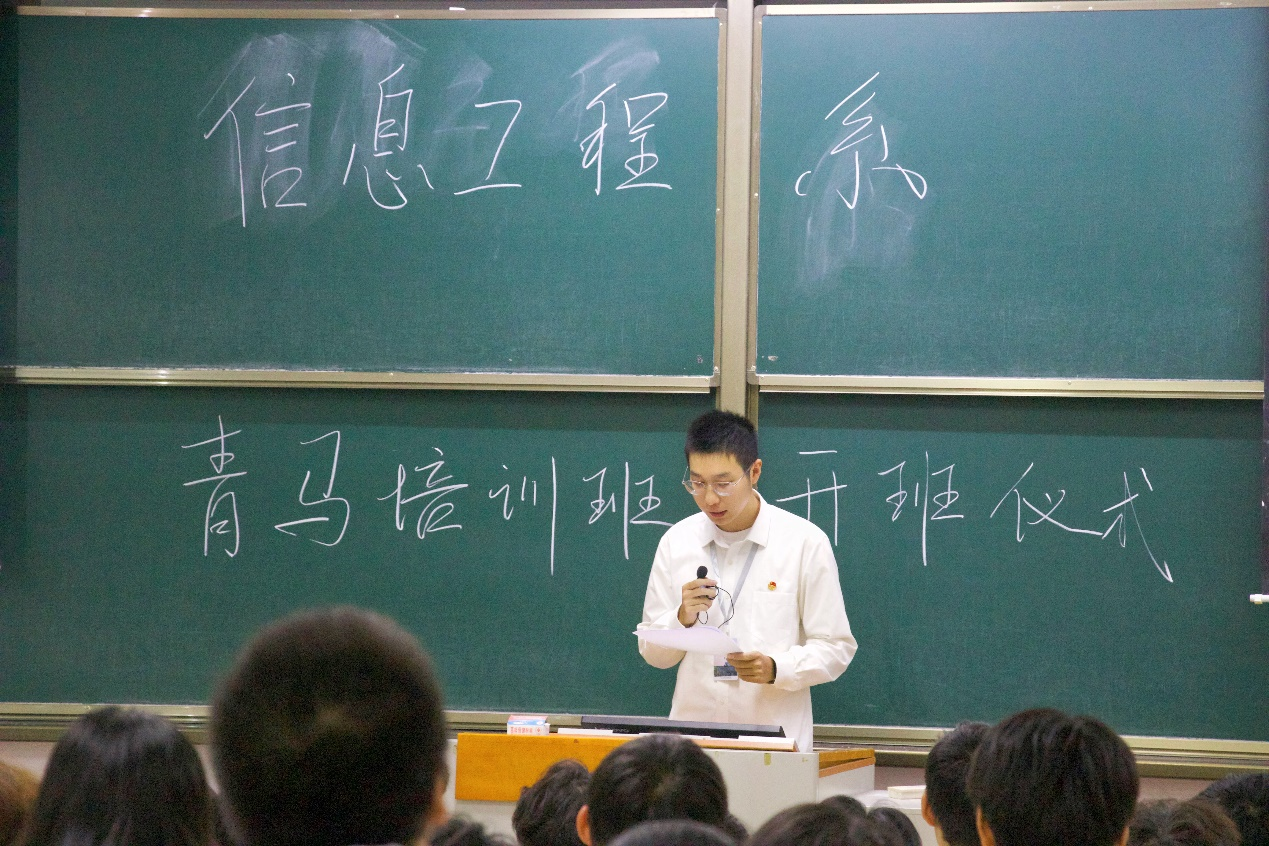 信息工程系
青马培训班开班仪式